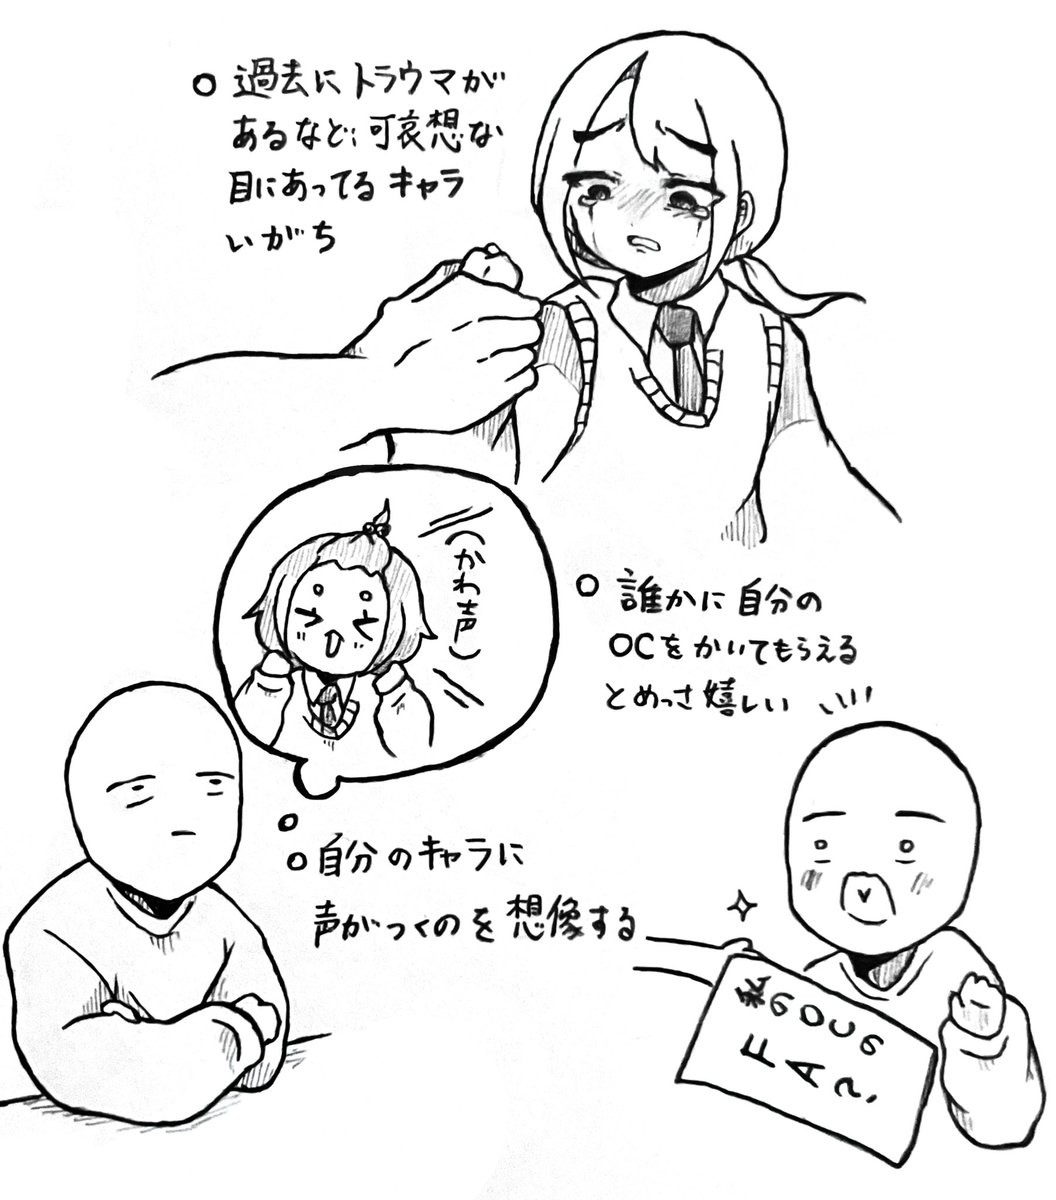 ○過去にトラウマが
あるなど、可哀想な
目にあってるキャラ
いがち
(かわ声)
○誰かに自分の
OCをかいてもらえる
とめっさ嬉しい
○自分のキャラに
声がつくのを想像する
私のOCの
FA?!